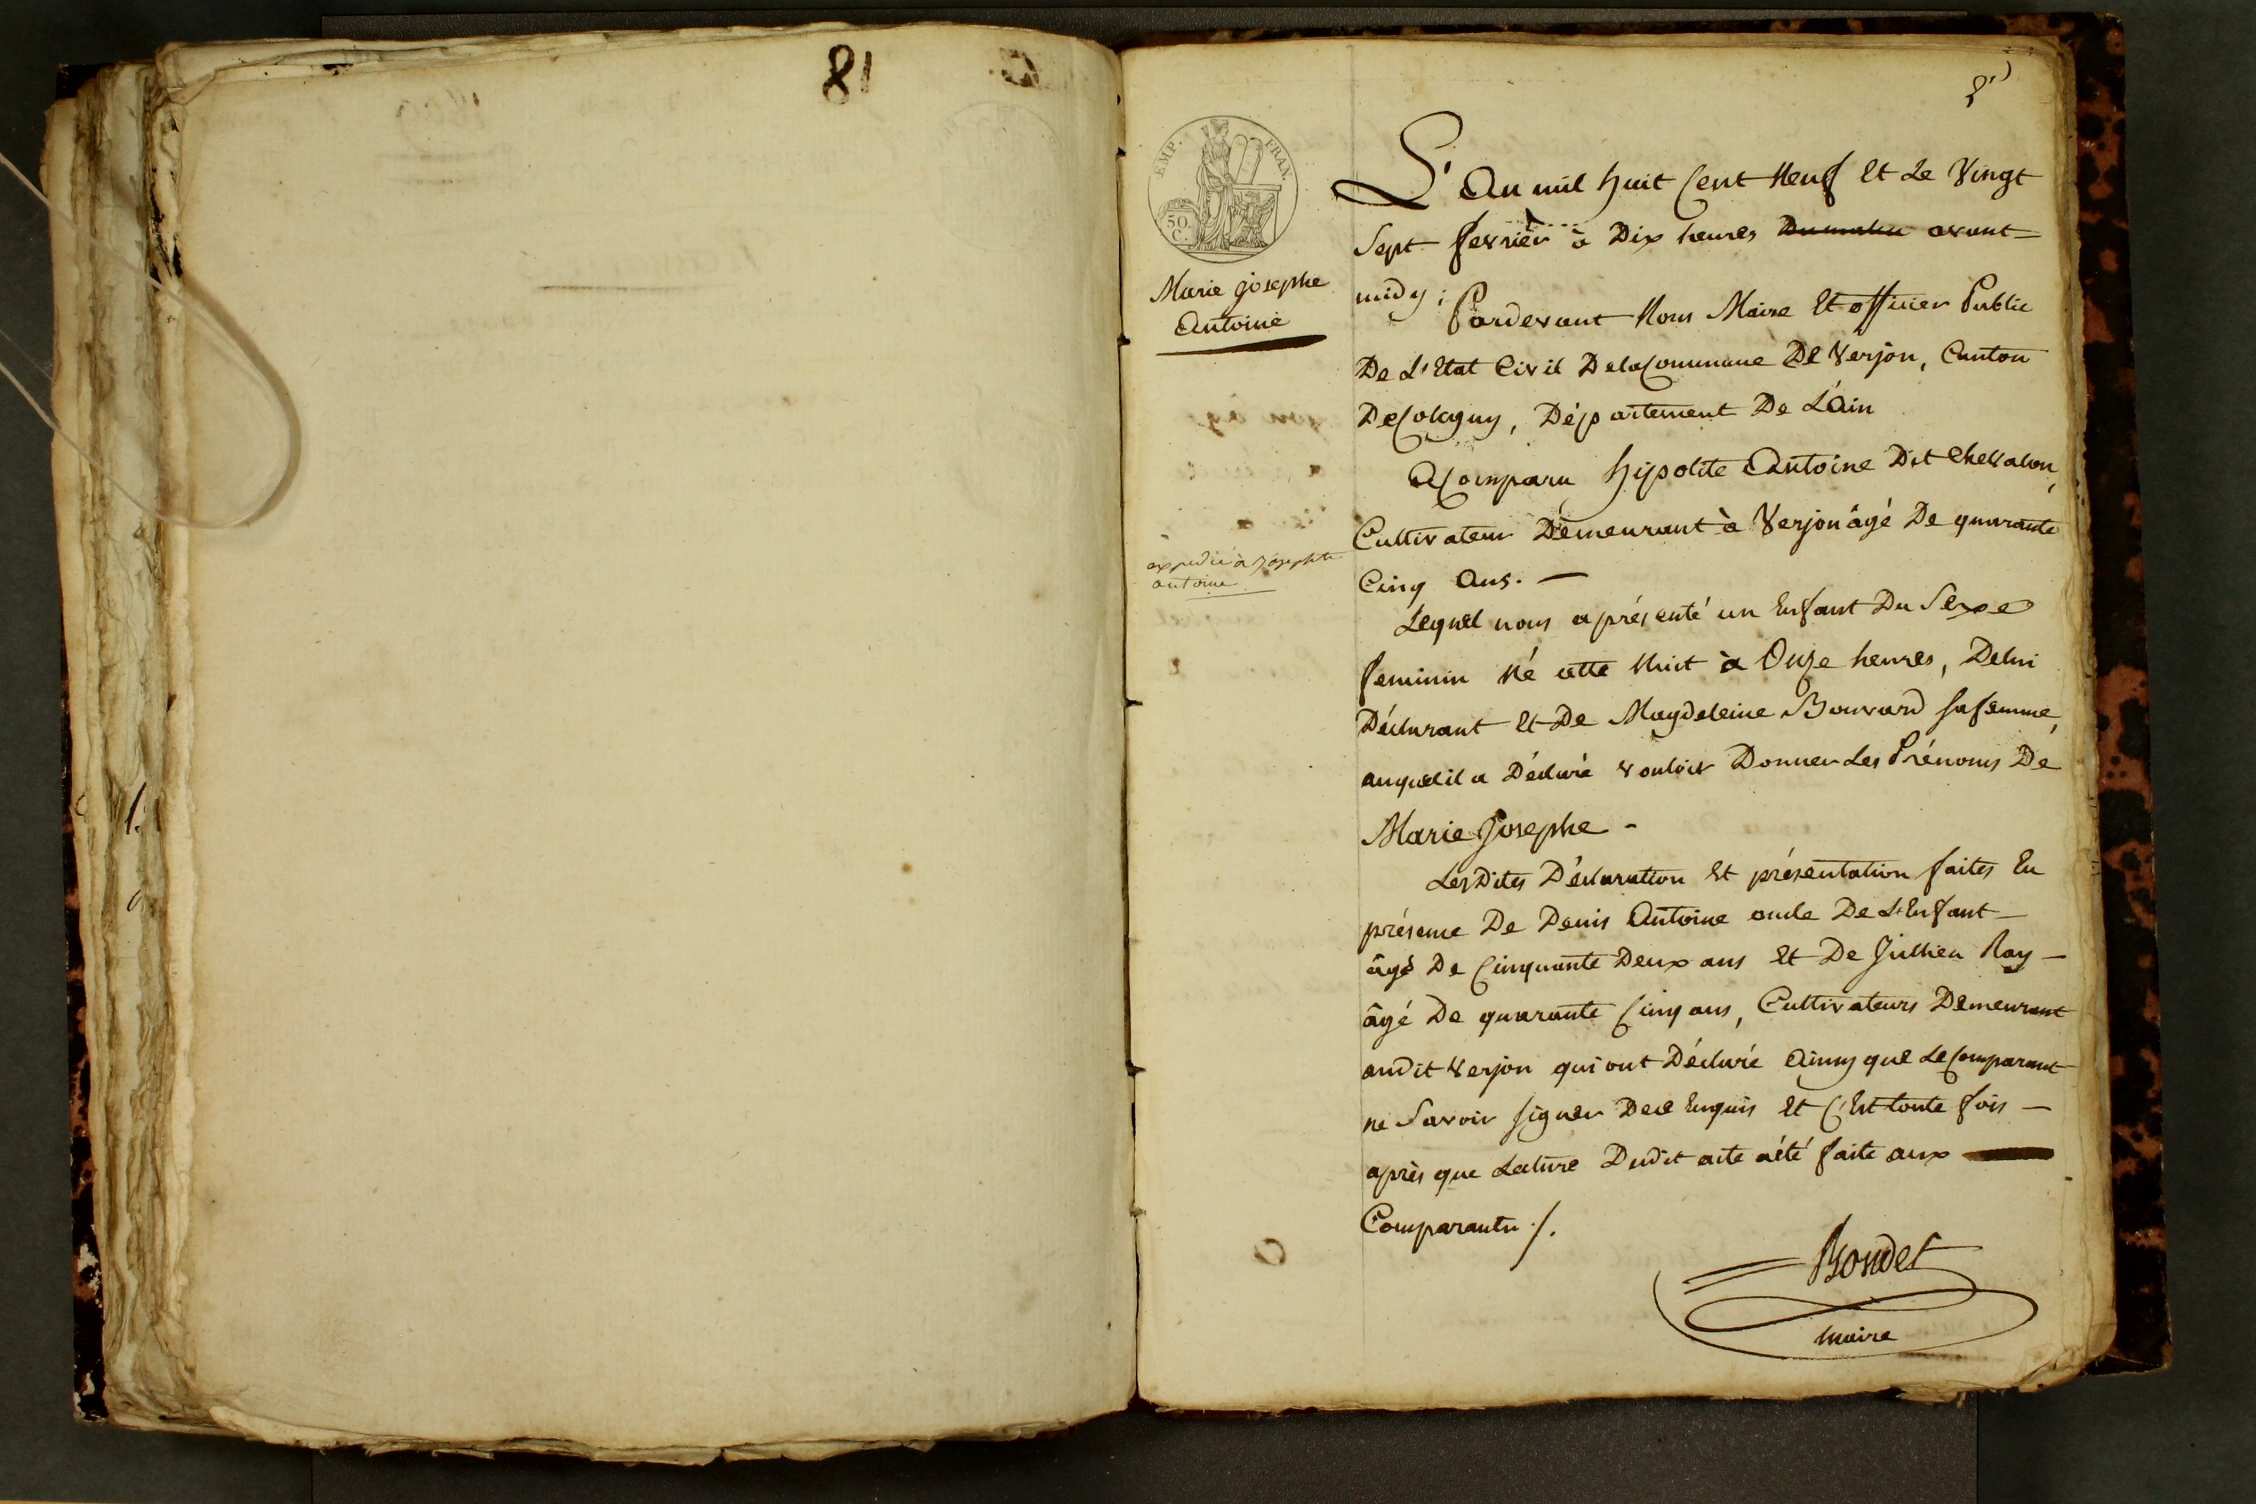 81
EMP. FRAN.
50 C.
Marie Josephe
Antoine
expedié à Josephte
antoine
L'an mil huit Cent Neuf Et Le Vingt
Sept fevrier à Dix heures Du matin avant-
midy; Pardevant Nous Maire Et officier Public
De L'Etat Civil De la Commune De Verjon, Canton
De Coligny, Département De L'Ain
A Comparu hipolite Antoine Dit Chevalon,
Cultivateur Demeurant à Verjon âgé De quarante
Cinq Ans. —
Lequel nous a présenté un Enfant Du Sexe
feminin Né cette Nuit à Onze heures, De lui
Déclarant Et De Magdeleine Bouvard sa femme,
auquel il a Déclaré vouloir Donner Les Prénoms De
Marie Josephe -
Les Dites Déclaration Et présentation faites En
présence De Denis Antoine oncle De L'Enfant —
âgé De Cinquante Deux ans Et De Jullien Ray —
âgé De quarante Cinq ans, Cultivateurs Demeurant
audit Verjon qui ont Déclaré Ainsy que Le Comparant
ne Savoir signer De ce Enquis Et C'Est toute fois —
après que Lecture Dudit acte a été faite aux
Comparants ./.
Bondet
maire